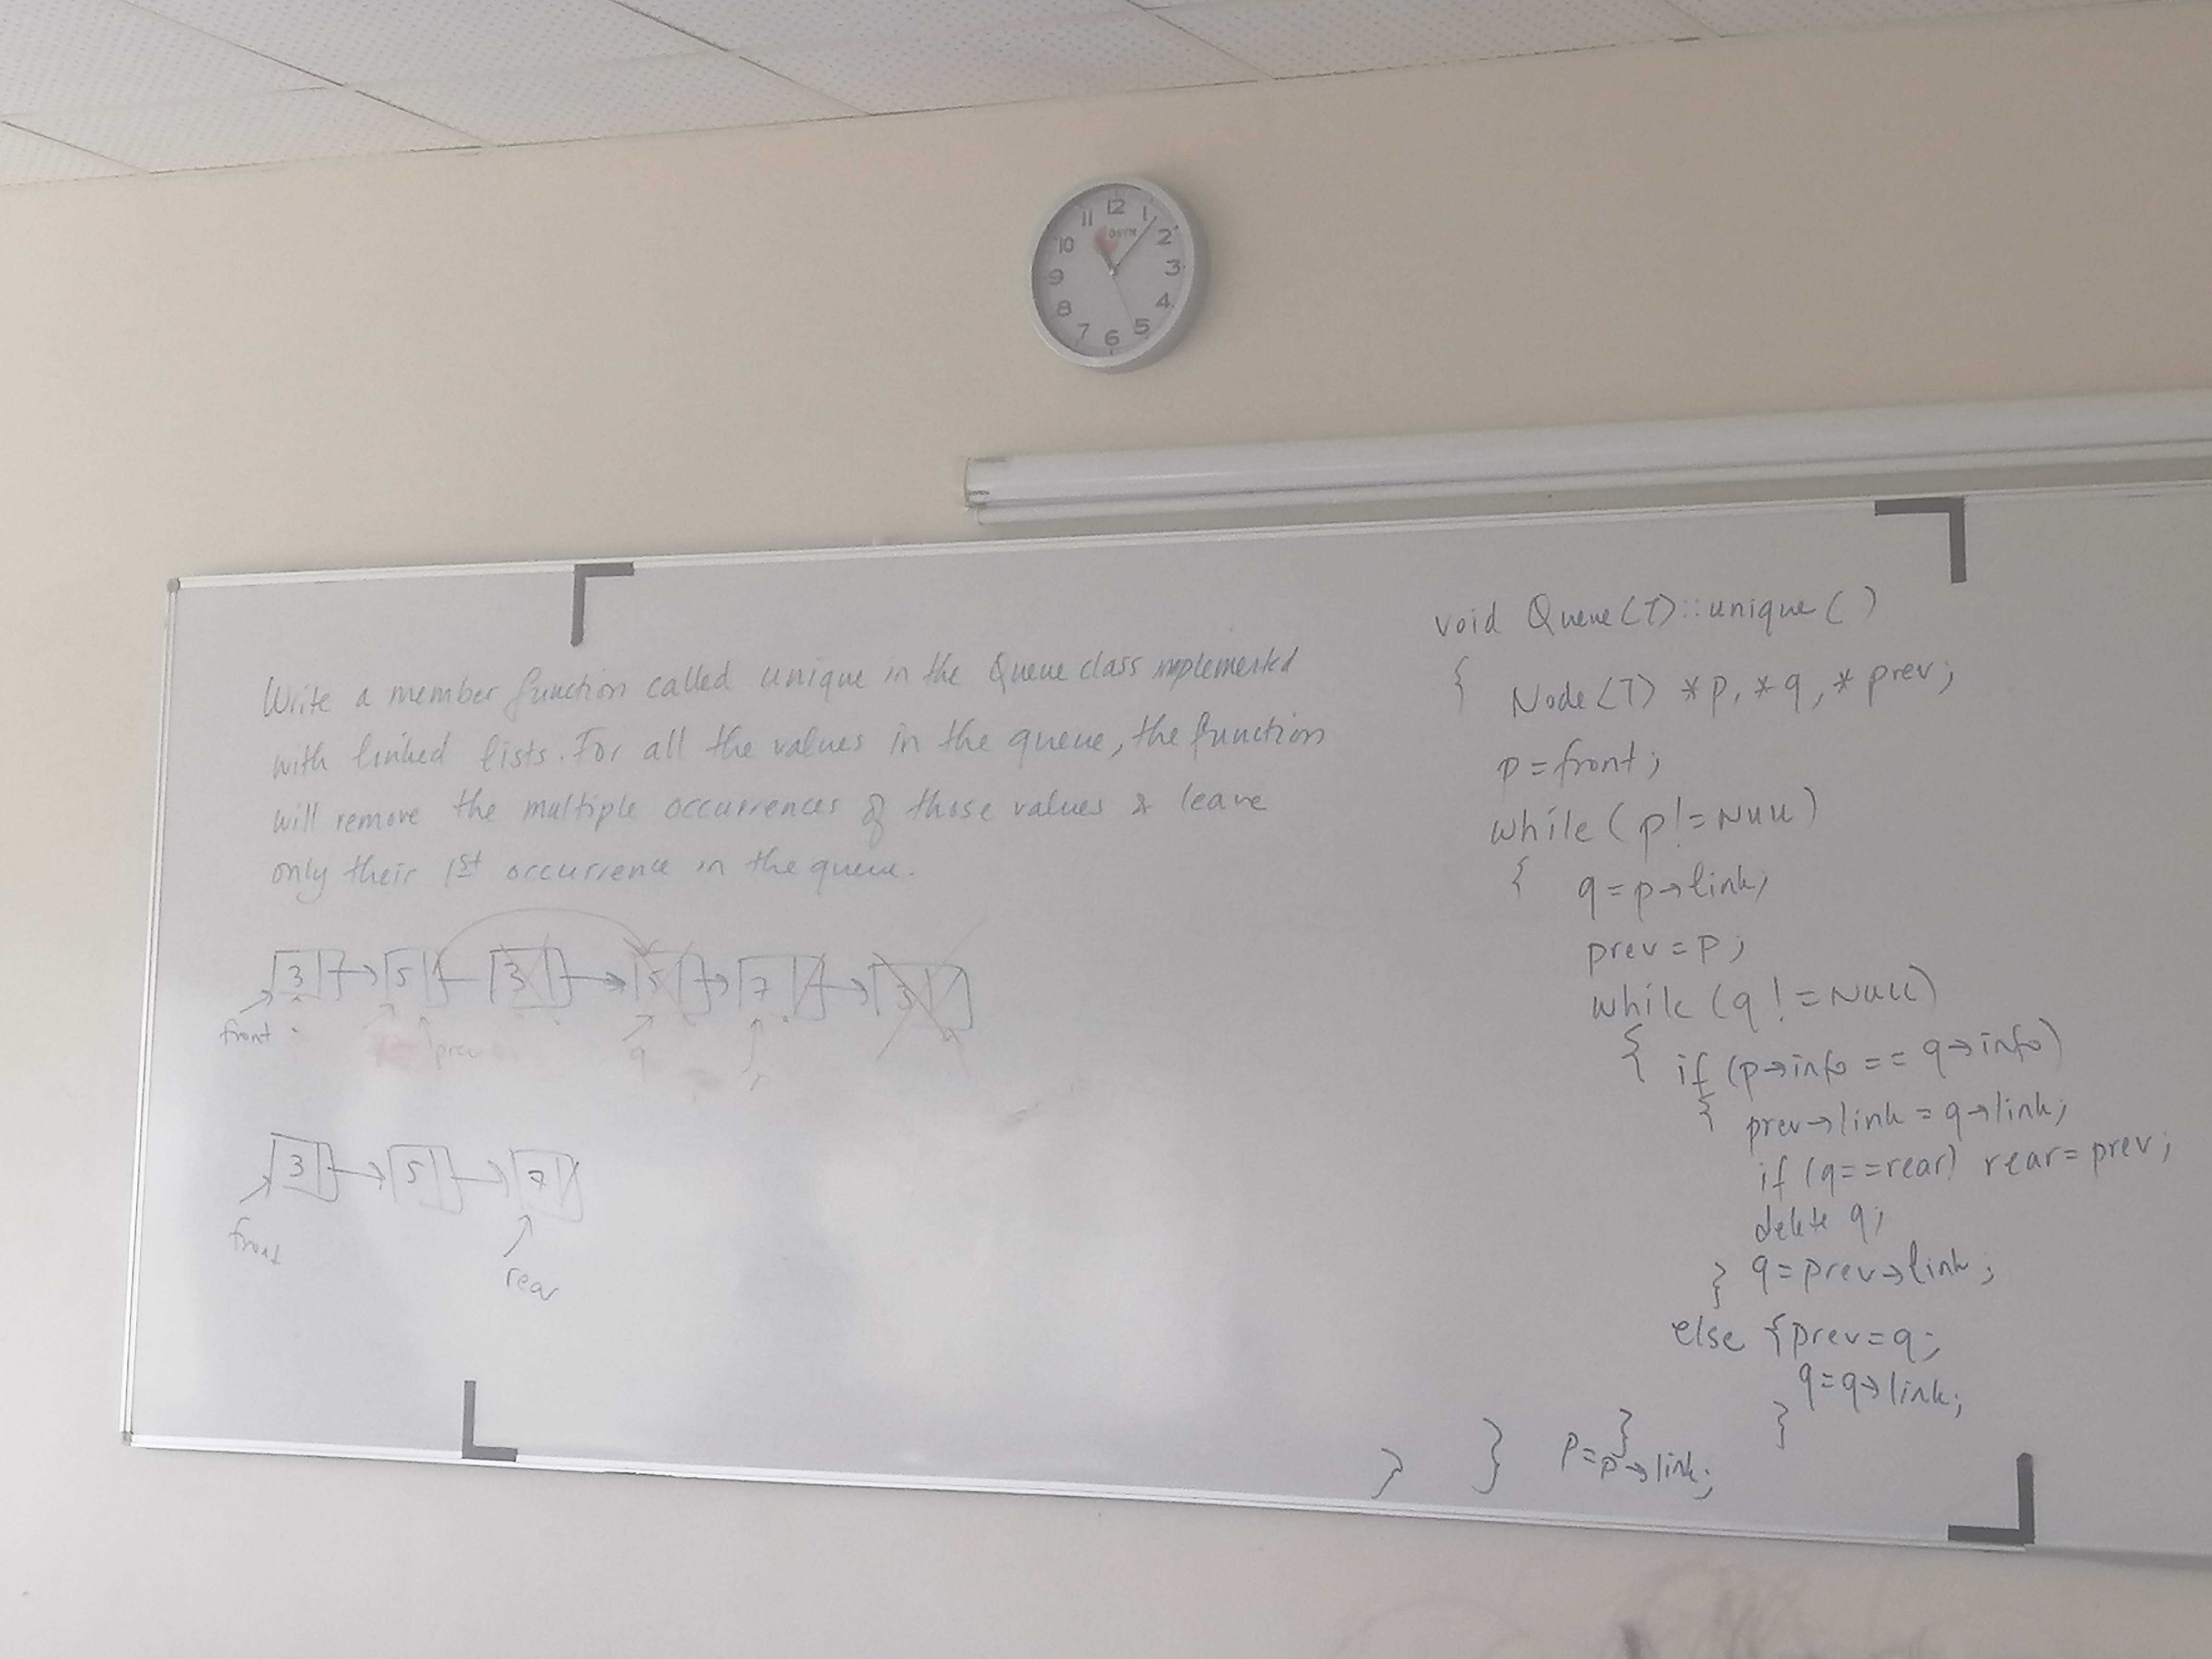 12
1
2
3
4
5
6
7
8
9
10
11
Write a member function called unique in the Queue class implemented
with linked lists. For all the values in the queue, the function
will remove the multiple occurrences of those values & leave
only their 1st occurrence in the queue.
3 5 3 5 7 3
front prev q r
3 5 7
front
rear
void Queue<T>::unique()
{ Node<T> *p, *q, *prev;
p=front;
while (p!=NULL)
{ q=p→link;
prev=p;
while (q!=NULL)
{ if (p→info == q→info)
{ prev→link = q→link;
if (q==rear) rear=prev;
delete q;
} q=prev→link;
else {prev=q;
q=q→link;
}
}
} p=p→link;
}